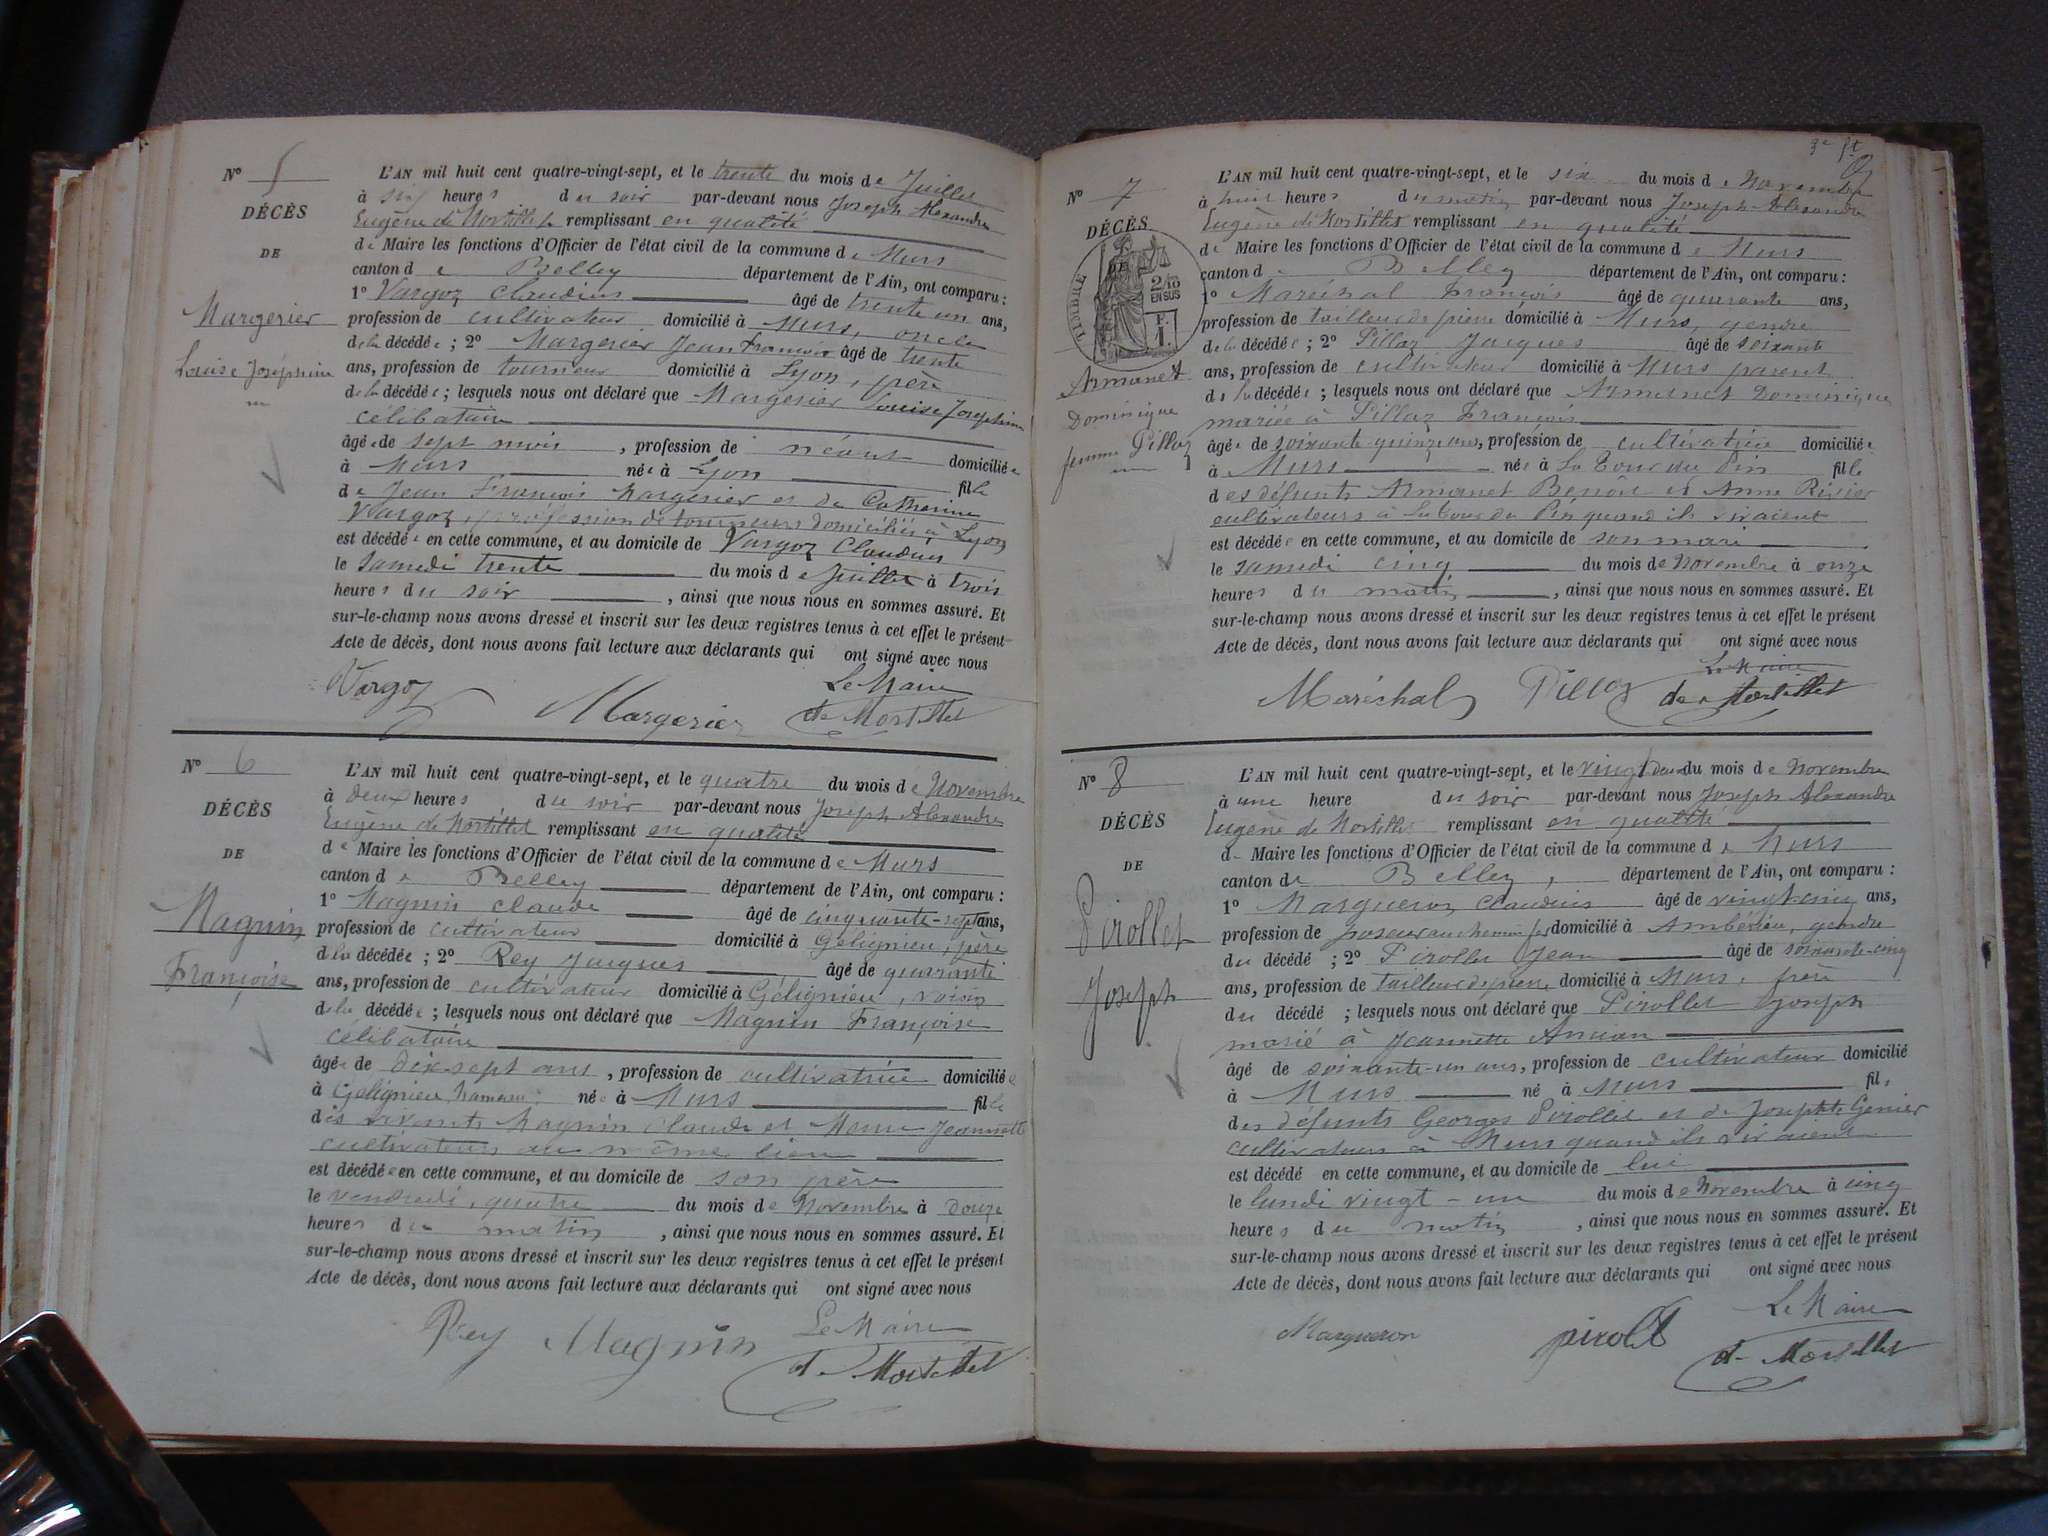 N° 5
DÉCÈS
DE
Margerier
Louise Joséphine
L'AN mil huit cent quatre-vingt-sept, et le trente du mois de Juillet
à six heures du soir par-devant nous Joseph Alexandre
Eugène de Mortillet remplissant en qualité
de Maire les fonctions d'Officier de l'état civil de la commune de Murs
canton de Belley département de l'Ain, ont comparu :
1° Vargoz Claudius âgé de trente un ans,
profession de cultivateur domicilié à Murs, oncle
de la décédée ; 2° Margerier Jean François âgé de trente
ans, profession de tourneur domicilié à Lyon, père
de la décédée ; lesquels nous ont déclaré que Margerier Louise Joséphine
célibataire
âgée de sept mois , profession de néant domiciliée
à Murs née à Lyon fille
de Jean François Margerier et de Catherine
Vargoz, profession de tourneurs domiciliés à Lyon
est décédée en cette commune, et au domicile de Vargoz Claudius
le Samedi trente du mois de Juillet à trois
heures du soir , ainsi que nous nous en sommes assuré. Et
sur-le-champ nous avons dressé et inscrit sur les deux registres tenus à cet effet le présent
Acte de décès, dont nous avons fait lecture aux déclarants qui ont signé avec nous
Le Maire
Vargoz Margerier de Mortillet
N° 6
DÉCÈS
DE
Magnin
Françoise
L'AN mil huit cent quatre-vingt-sept, et le quatre du mois de Novembre
à deux heures du soir par-devant nous Joseph Alexandre
Eugène de Mortillet remplissant en qualité
de Maire les fonctions d'Officier de l'état civil de la commune de Murs
canton de Belley département de l'Ain, ont comparu :
1° Magnin Claude âgé de cinquante-sept ans,
profession de cultivateur domicilié à Gélignieu, père
de la décédée ; 2° Rey Jacques âgé de quarante
ans, profession de cultivateur domicilié à Gélignieu, voisin
de la décédée ; lesquels nous ont déclaré que Magnin Françoise
célibataire
âgée de dix-sept ans , profession de cultivatrice domiciliée
à Gélignieu, hameau née à Murs fille
des vivants Magnin Claude et Jeannette
cultivateurs au même lieu
est décédée en cette commune, et au domicile de son père
le vendredi, quatre du mois de Novembre à douze
heures du matin , ainsi que nous nous en sommes assuré. Et
sur-le-champ nous avons dressé et inscrit sur les deux registres tenus à cet effet le présent
Acte de décès, dont nous avons fait lecture aux déclarants qui ont signé avec nous
Le Maire
Rey Magnin de Mortillet
3e ft
N° 7
DÉCÈS
DE
TIMBRE
2/10
EN SUS
F.
1.
Armanet
Dominique
femme Pillaz
L'AN mil huit cent quatre-vingt-sept, et le six du mois de Novembre
à huit heures du matin par-devant nous Joseph-Alexandre
Eugène de Mortillet remplissant en qualité
de Maire les fonctions d'Officier de l'état civil de la commune de Murs
canton de Belley département de l'Ain, ont comparu :
1° Maréchal François âgé de quarante ans,
profession de tailleur de pierre domicilié à Murs, gendre
de la décédée ; 2° Pillaz Jacques âgé de soixante
ans, profession de cultivateur domicilié à Murs parent
de la décédée ; lesquels nous ont déclaré que Armanet Dominique
mariée à Pillaz François
âgée de soixante-quinze ans, profession de cultivatrice domiciliée
à Murs née à La Tour du Pin fille
des défunts Armanet Benoît et Anne Rivier
cultivateurs à la Tour du Pin quand ils vivaient
est décédée en cette commune, et au domicile de son mari
le samedi cinq du mois de Novembre à onze
heures du matin , ainsi que nous nous en sommes assuré. Et
sur-le-champ nous avons dressé et inscrit sur les deux registres tenus à cet effet le présent
Acte de décès, dont nous avons fait lecture aux déclarants qui ont signé avec nous
Le Maire
Maréchal Pillaz de Mortillet
N° 8
DÉCÈS
DE
Pirollet
Joseph
L'AN mil huit cent quatre-vingt-sept, et le vingt deux du mois de Novembre
à une heure du soir par-devant nous Joseph Alexandre
Eugène de Mortillet remplissant en qualité
de Maire les fonctions d'Officier de l'état civil de la commune de Murs
canton de Belley, département de l'Ain, ont comparu :
1° Margueron Claudius âgé de vingt-cinq ans,
profession de poseur au chemin fer domicilié à Ambérieu, gendre
du décédé ; 2° Pirollet Jean âgé de soixante-cinq
ans, profession de tailleur de pierre domicilié à Murs, frère
du décédé ; lesquels nous ont déclaré que Pirollet Joseph
marié à Jeannette Ancian
âgé de soixante-un ans, profession de cultivateur domicilié
à Murs né à Murs fils
des défunts Georges Pirollet et de Josephte Genier
cultivateurs à Murs quand ils vivaient
est décédé en cette commune, et au domicile de lui
le lundi vingt-un du mois de Novembre à cinq
heures du matin , ainsi que nous nous en sommes assuré. Et
sur-le-champ nous avons dressé et inscrit sur les deux registres tenus à cet effet le présent
Acte de décès, dont nous avons fait lecture aux déclarants qui ont signé avec nous
Le Maire
Margueron pirollet de Mortillet